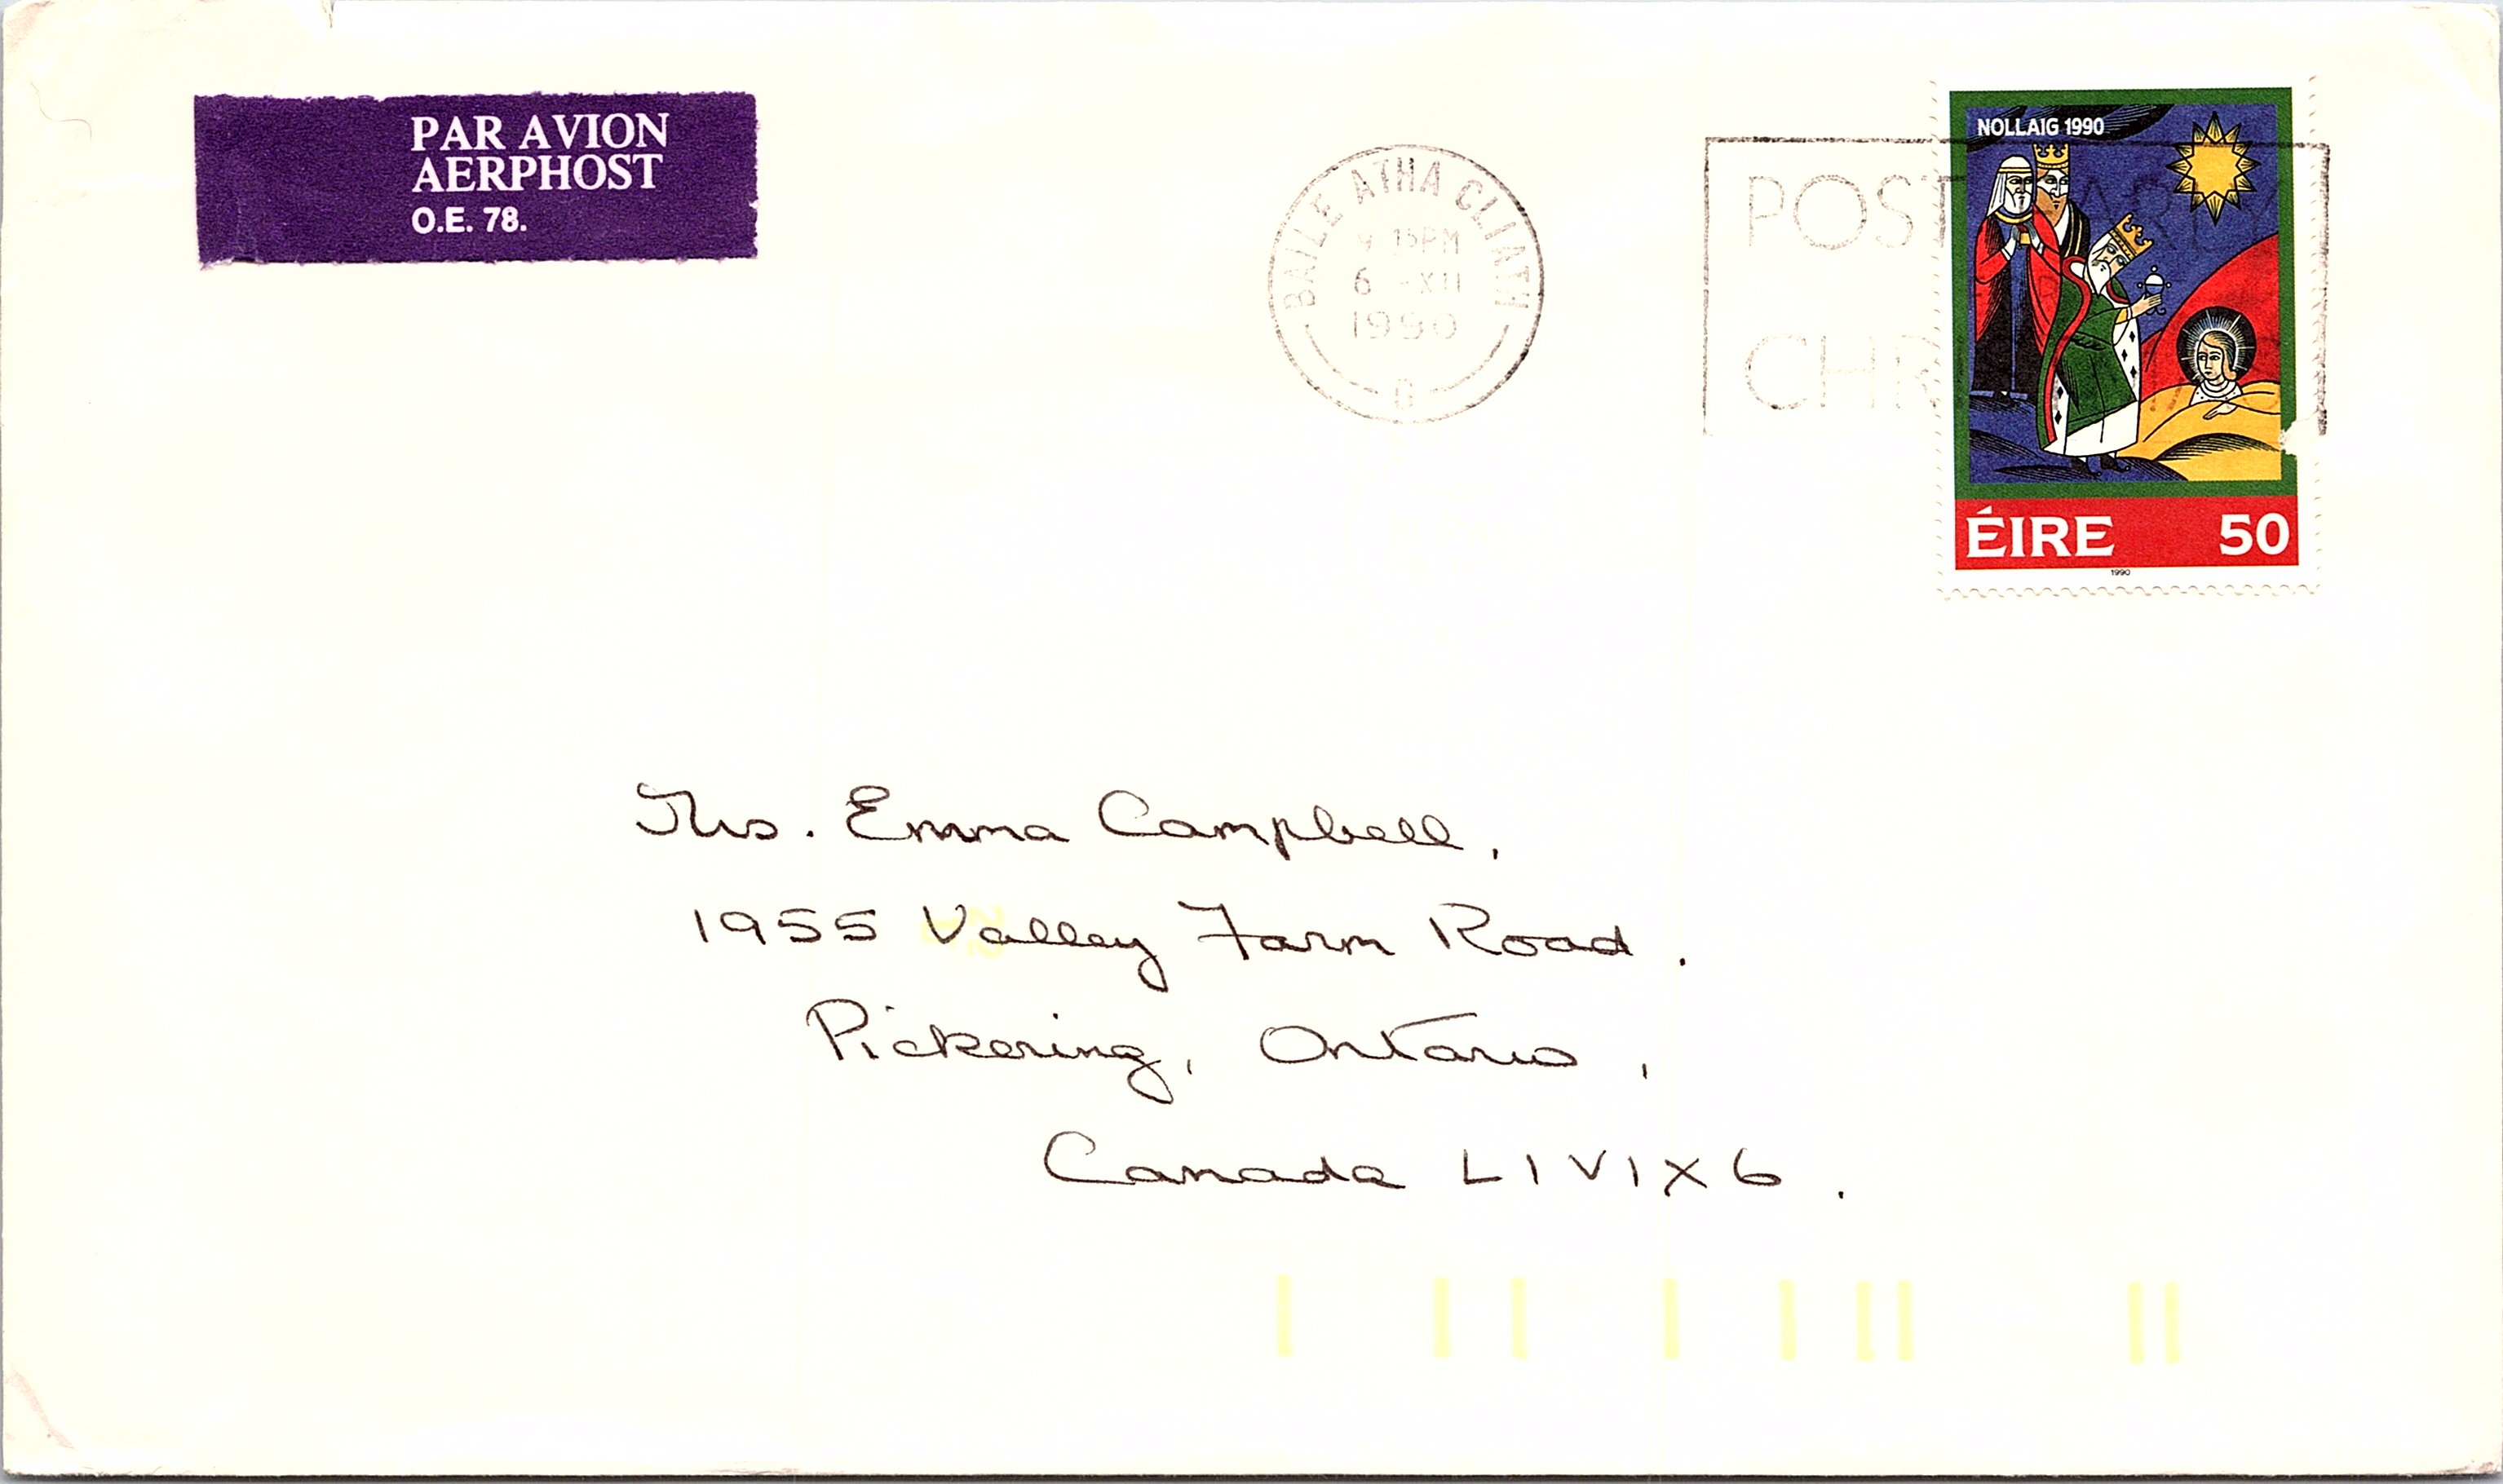 PAR AVION
AERPHOST
O.E. 78.
BAILE ATHA CLIATH
9 15PM
6 -XII
1990
POST EARLY
NOLLAIG 1990
ÉIRE 50
1990
Mrs. Emma Campbell,
1955 Valley Farm Road.
Pickering, Ontario,
Canada L1V1X6.